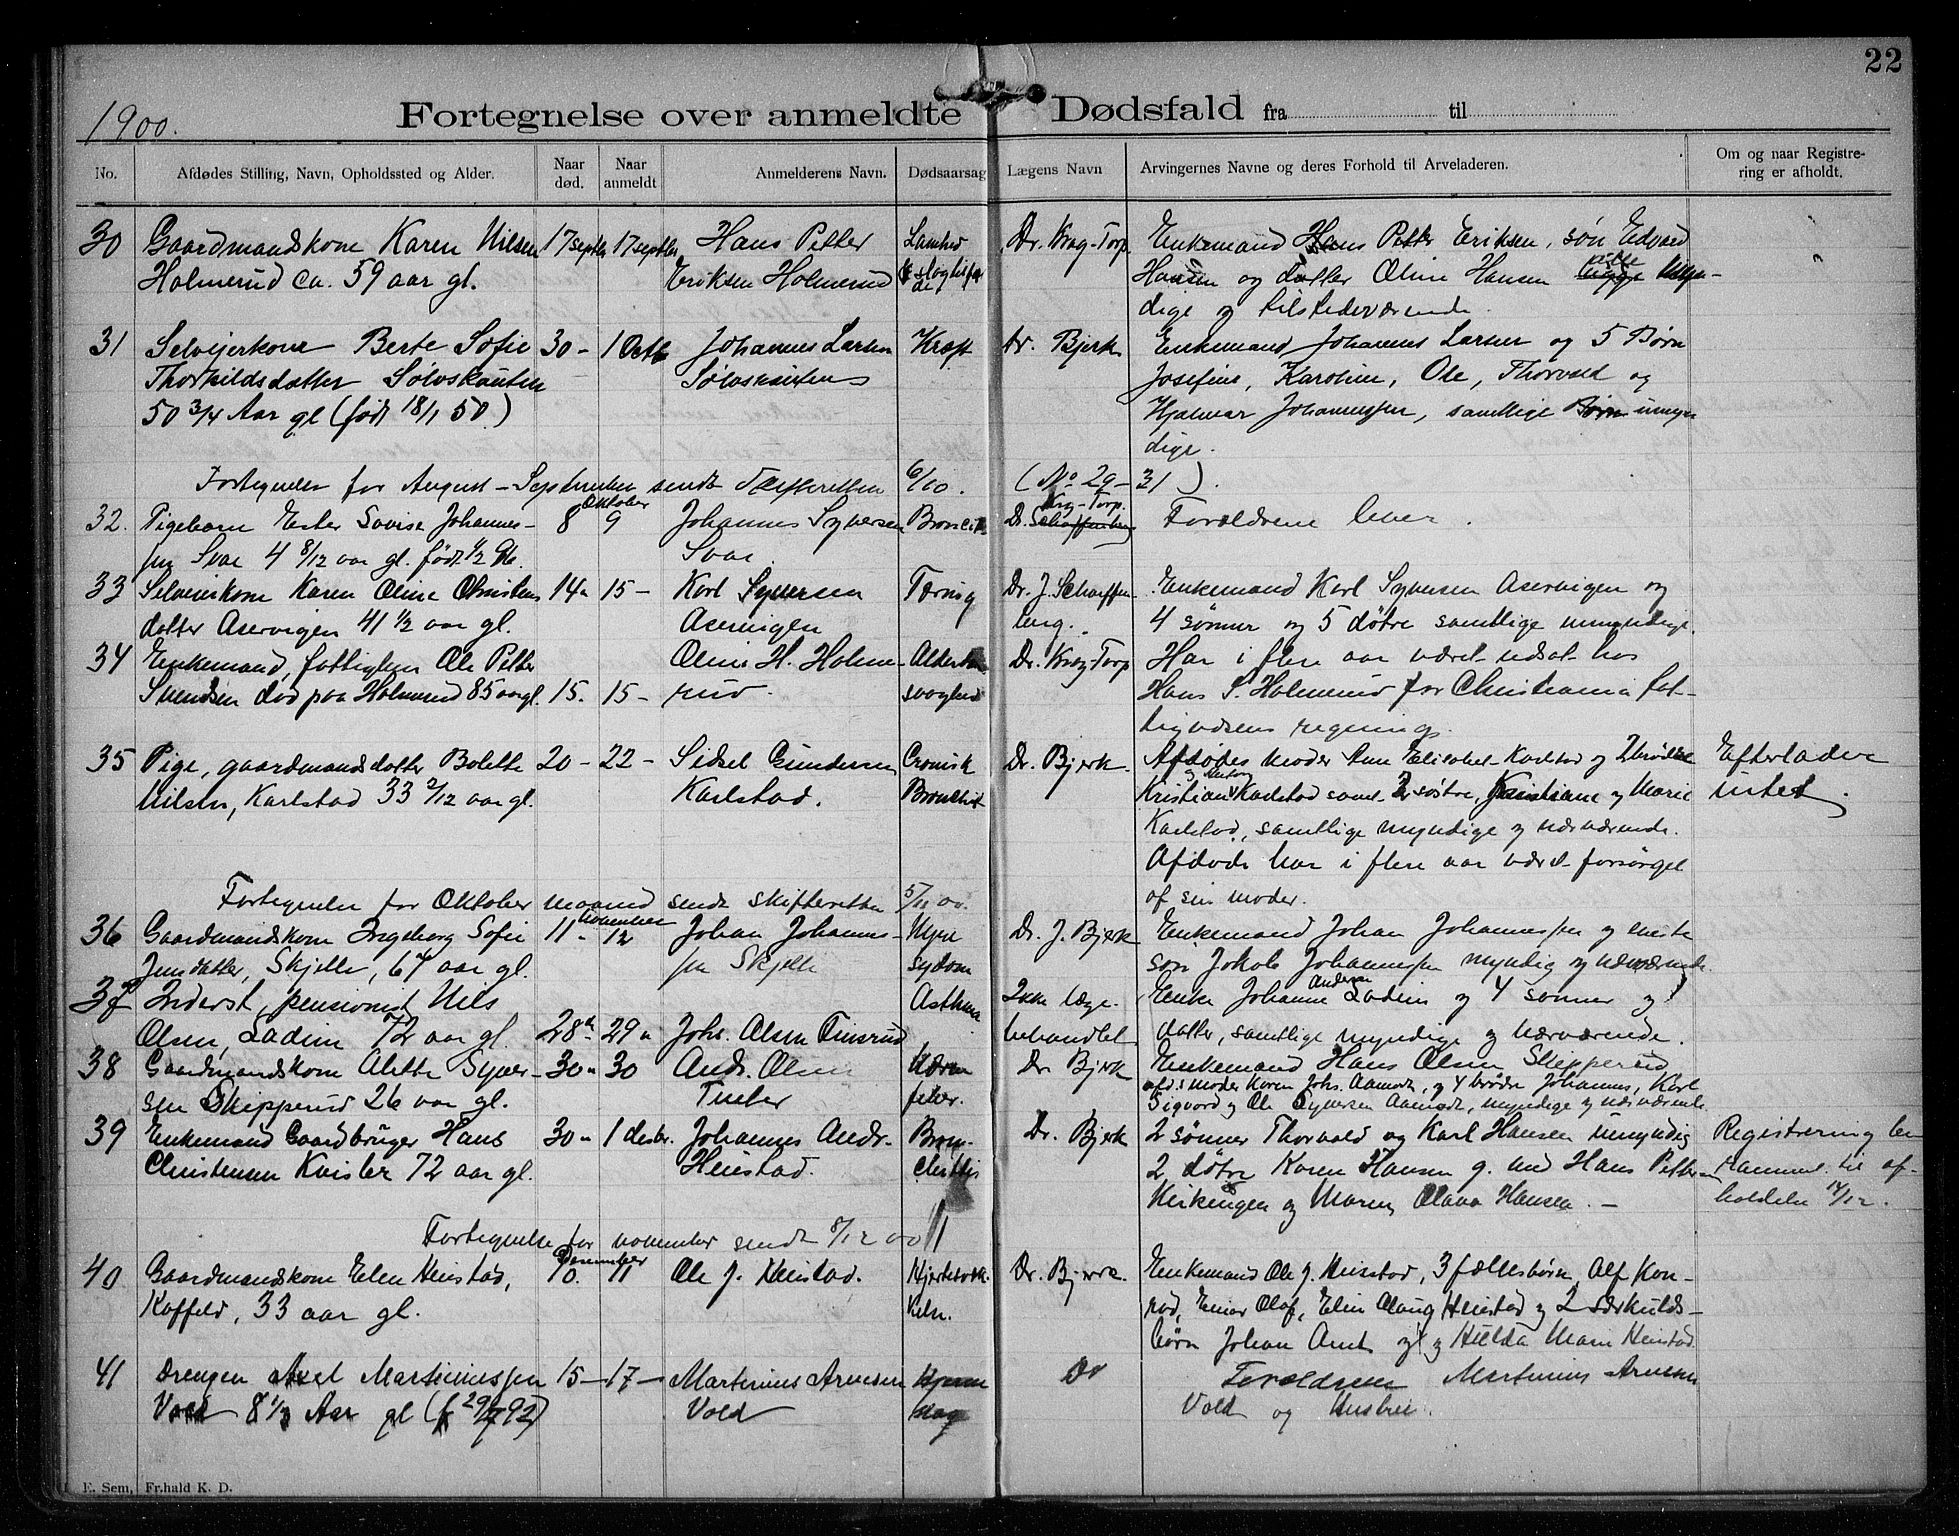 22
1900.
Fortegnelse over anmeldte Dødsfald fra til
No. Afdødes Stilling, Navn, Opholdssted og Alder. Naar død. Naar anmeldt Anmelderens Navn. Dødsaarsag Lægens Navn Arvingernes Navne og deres Forhold til Arveladeren. Om og naar Registrering er afholdt.
30 Gaardmandskone Karen Nilsen 17 septbr 17 septbr Hans Petter Lamhed Dr. Krag-Torp Enkemand Hans Petter Eriksen, søn Edvard
Holmerud ca. 59 aar gl. Eriksen Holmerud Hansen og datter Oline Hansen alle Myn-
dige og tilstedeværende.
31 Selveierkone Berte Sofie 30 - 1 Octb Johannes Larsen Kræft Dr. Bjerk Enkemand Johannes Larsen og 5 Børn
Thorkildsdatter Sølvskauten Sølvskauten Josefine, Karoline, Ole, Thorvald og
50 3/4 Aar gl (født 18/1 50) Hjalmar Johannessen, samtlige Børn umyn
dige.
Fortegnelse for August - September sendt Skifteretten 6/10. (No 29 - 31).
32. Pigebarn Ester Lovise Johannes- 8 Oktober 9 Johannes Syversen Dr. Schaffenberg Krag-Torp. Forældrene lever.
sen Svae 4 8/12 aar gl. født 1/2 96. Svae
33 Selveierkone Karen Oline Christens 14 " 15 - Karl Syversen Tæring Dr. J. Scharffen Enkemand Karl Syversen Aservigen og
datter Aservigen 41 1/2 aar gl. Aservigen berg. 4 sønner og 5 døtre samtlige umyndige.
34 Enkemand, fattiglem Ole Petter Oline H. Holme- Alderdom Dr. Krag-Torp Har i flere aar været udsat hos
Svendsen død paa Holmerud 85 aar gl. 15. 15 - rud. svaghed Hans P. Holmerud for Christiania fat-
tigvæsens regning.
35 Pige, gaardmandsdatter Bolette 20 - 22 - Sidsel Gundersen Cronisk Dr. Bjerk. Afdødes moder Anne Elisabet Karlstad og 2 brødre Efterlader
Nilsen, Karlstad 33 2/12 aar gl. Karlstad. Bronchit Kristian Karlstad samt 2 søstre, Kristiane og Marie intet.
Karlstad, samtlige myndige og nærværende.
Afdøde har i flere aar været forsørget
af sin moder.
Fortegnelse for Oktober maaned sendt skifteretten 5/11 00.
36 Gaardmandskone Ingeborg Sofie 11 - november 12 Johan Johannes- Nyre Dr. J. Bjerk Enkemand Johan Johannessen og eneste
Jensdatter, Skjelle, 67 aar gl. sen Skjelle sygdom søn Jakob Johannessen myndig og nærværende
37 Inderst, pensionist Nils Asthma Ikke læge- Enke Johanne Andersen Ladim og 4 sønner og
Olsen, Ladim 72 aar gl. 28 " 29 " Johs. Olsen Finsrud behandlet datter, samtlige myndige og nærværende.
38 Gaardmandskone Alette Syver- 30 " 30 Andr. Olsen Dr. Bjerk Enkemand Hans Olsen Skipperud
sen Skipperud 26 aar gl. Tueter feber. afd.s moder Karen Johs. Aamodt, og 4 brødre Johannes, Karl
Sigvard og Ole Syversen Aamodt, myndige og nærværende
39 Enkemand Gaardbruger Hans 30 " 1 desbr. Johannes Andr. Bron- Dr. Bjerk 2 sønner Thorvald og Karl Hansen umyndig Registrering be
Christensen Kvisler 72 aar gl. Heiestad. chittis 2 døtre Karen Hansen g. med Hans Petter- stammet til af-
Kirkengen og Maren Olava Hansen. - holdelse 14/12.
Fortegnelse for november sendt 8/12 00
40 Gaardmandskone Elen Heiestad, 10. December 11 Ole J. Heiestad. Dr. Bjerk. Enkemand Ole J. Heiestad, 3 fællesbørn, Alf Kon-
Koffeld, 33 aar gl. rad, Einar Olaf, Elin Olaug Heiestad og 2 særkulds-
børn Johan Arnt og Hilda Marie Heiestad
41 Drengen Axel Martiniussen 15 - 17 - Martinius Arnesen Do Forældrene Martinius Arnesen
Vold 8 1/2 Aar gl (f 29/7 92) Vold Vold og Hustru.
E. Sem, Fr.hald K. D.